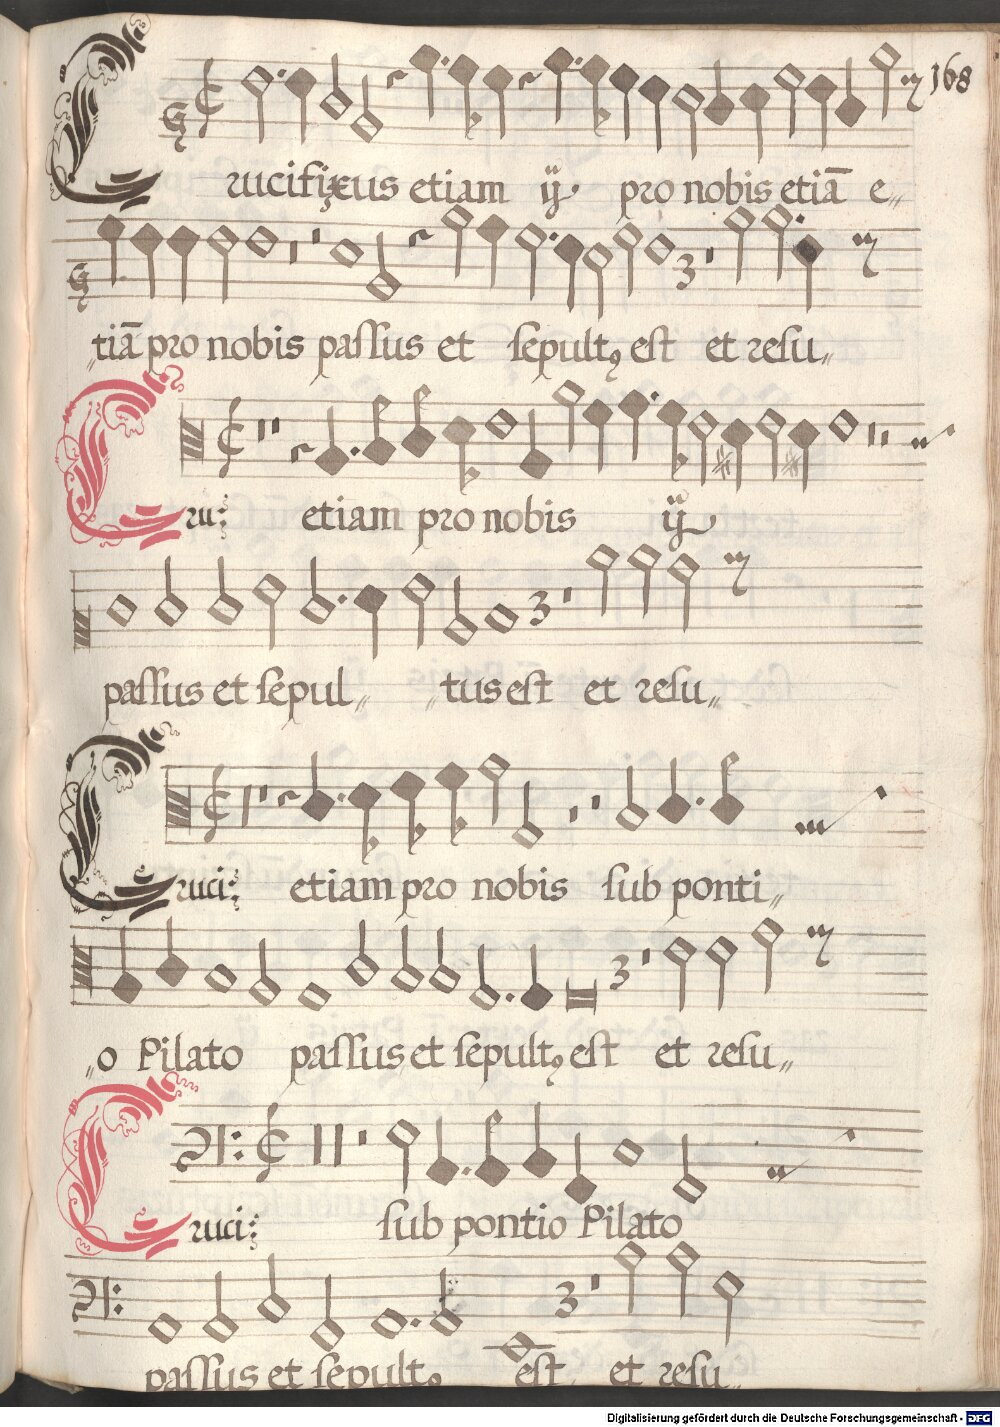 168
Crucifixus etiam ij pro nobis etiā e„
„tiā pro nobis passus et sepultꝯ est et resu„
Cru: etiam pro nobis ij
passus et sepul„ „tus est et resu„
Cruci: etiam pro nobis sub ponti„
„o Pilato passus et sepultꝯ est et resu„
Cruci: sub pontio Pilato
passus et sepultꝯ est et resu„
Digitalisierung gefördert durch die Deutsche Forschungsgemeinschaft - DFG